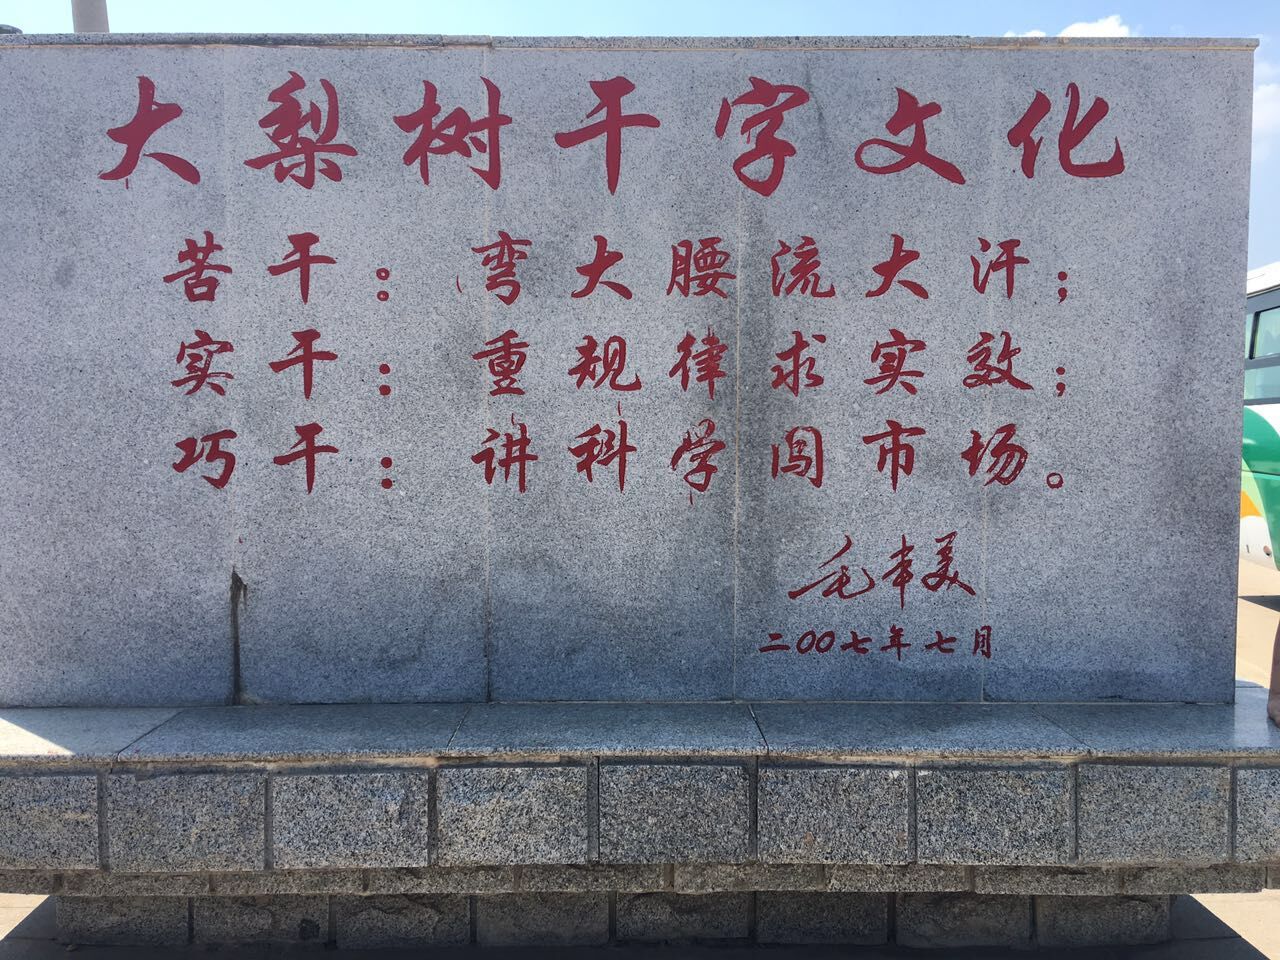 大梨树干字文化
苦干：弯大腰流大汗；
实干：重规律求实效；
巧干：讲科学闯市场。
毛丰美
二00七年七月